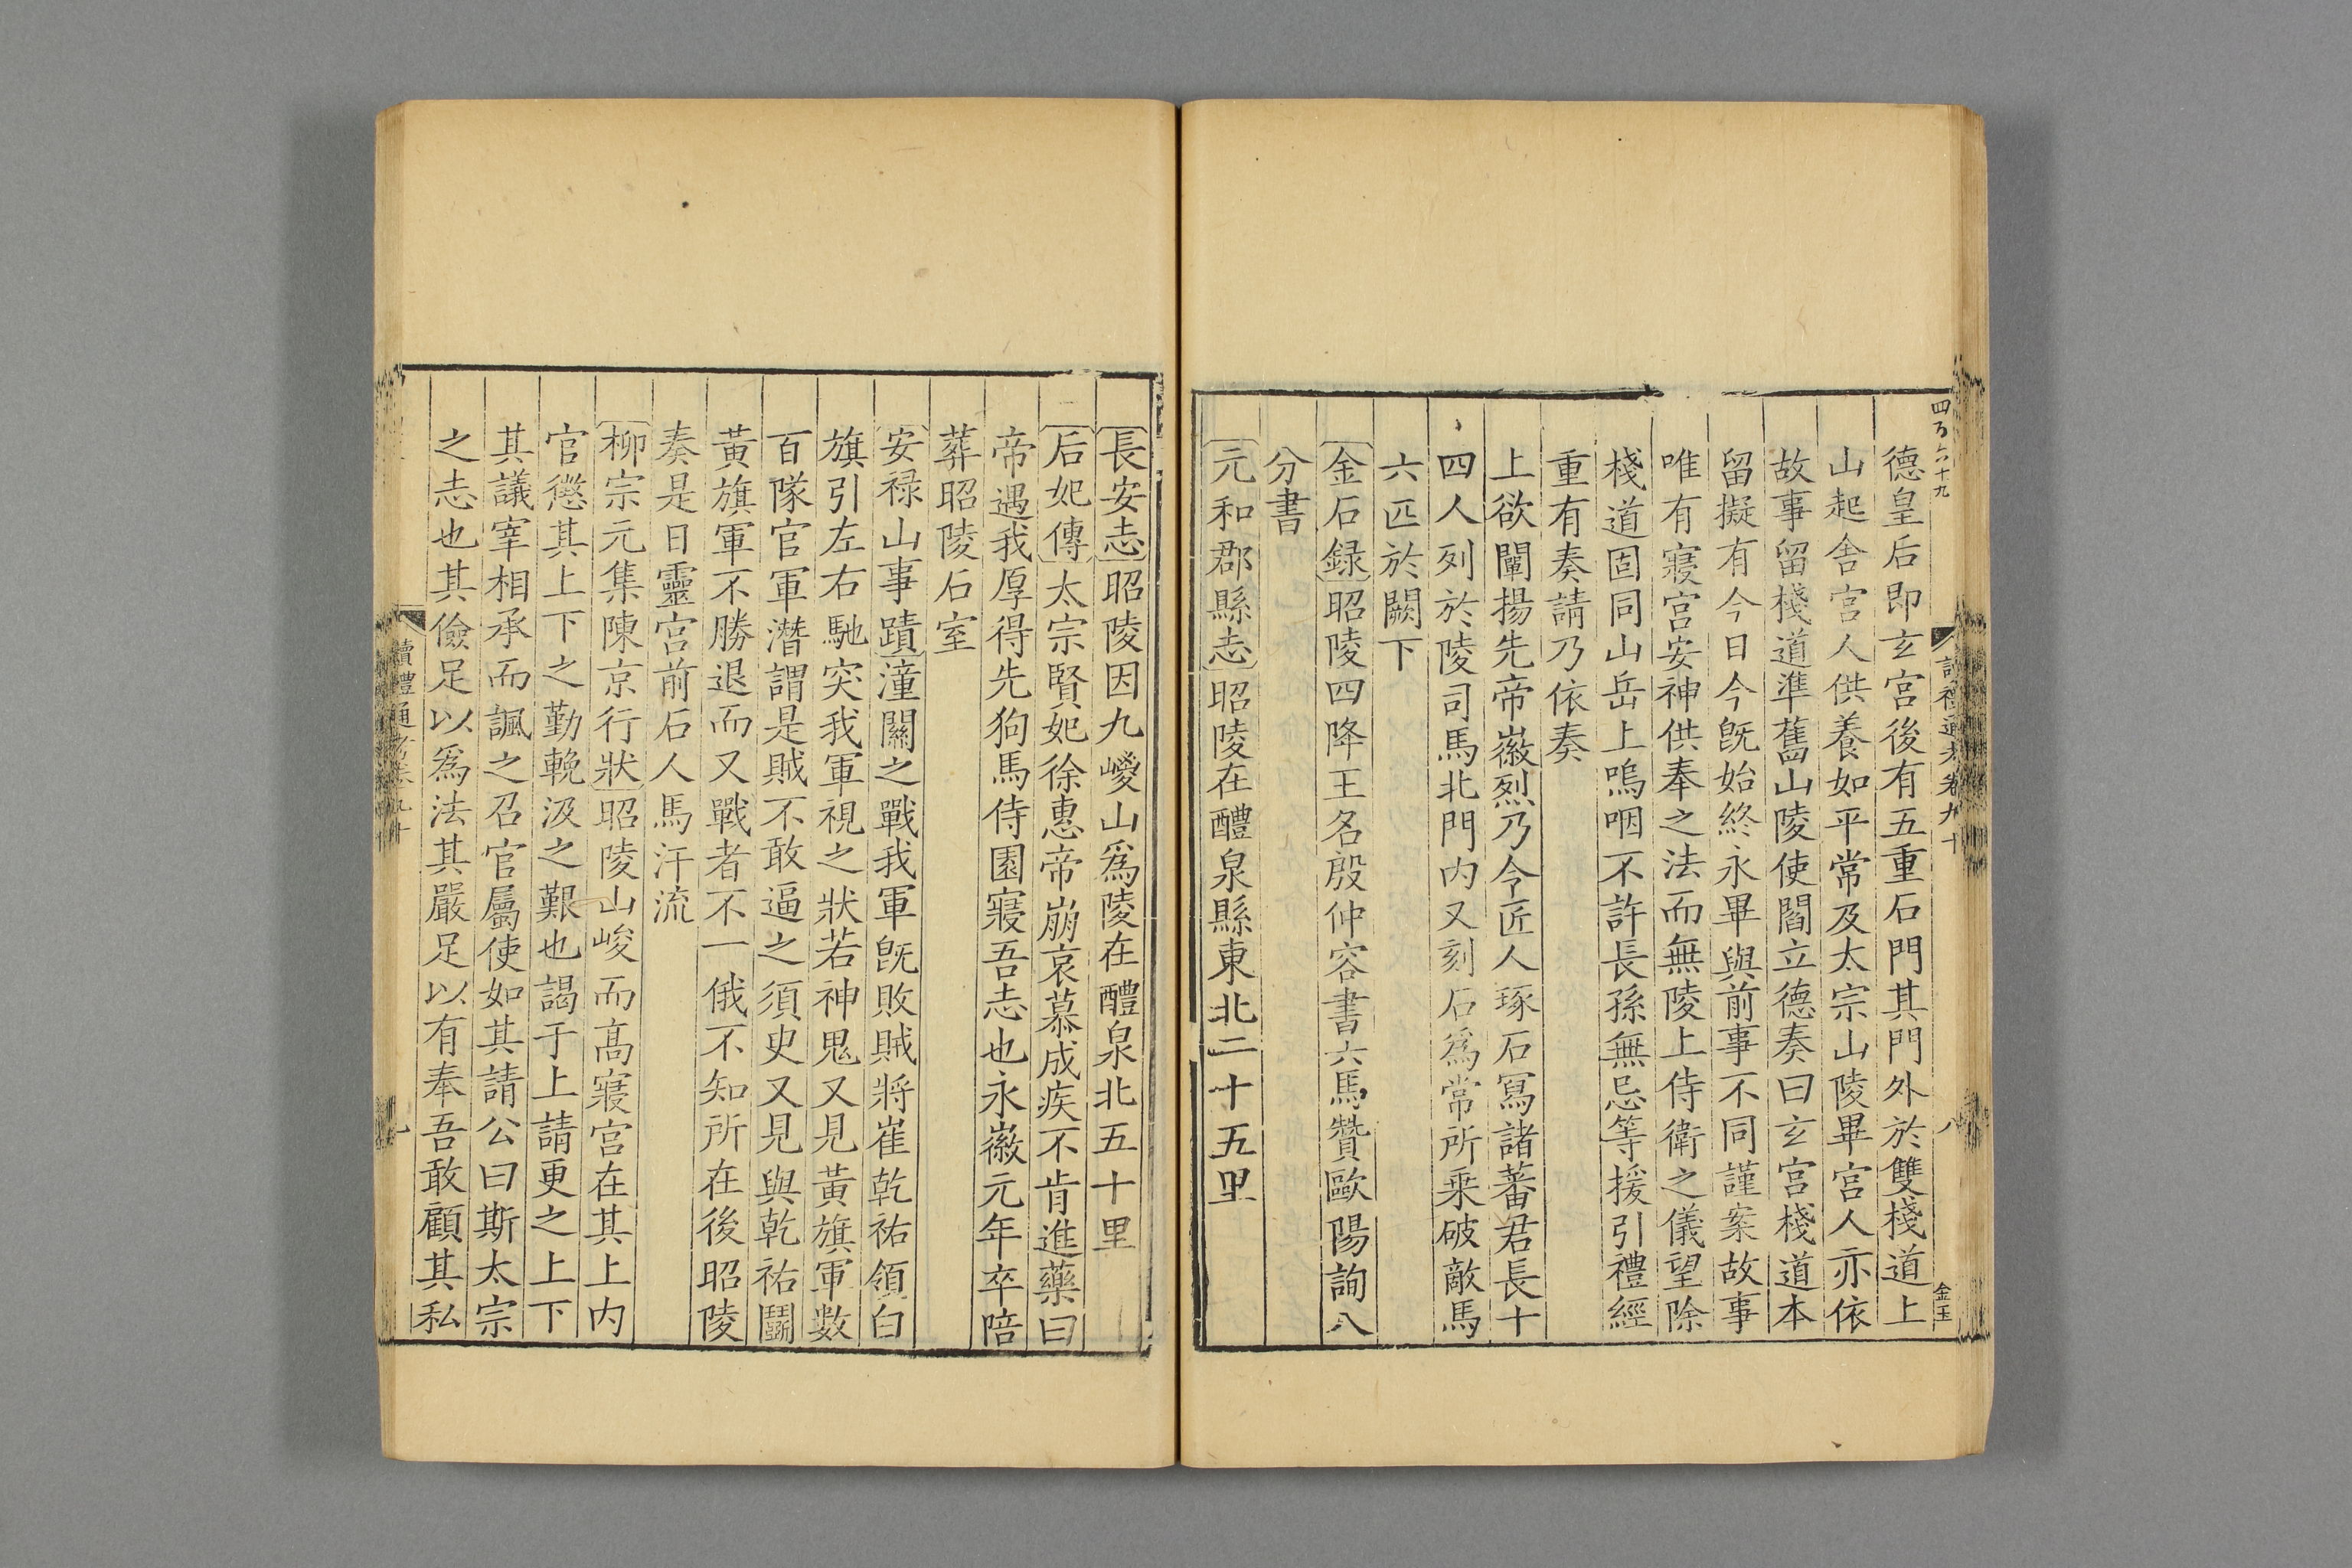 四百六十九
讀禮通考卷九十
八
金玉
德皇后即玄宮後有五重石門其門外於雙棧道上
山起舍宮人供養如平常及太宗山陵畢宮人亦依
故事留棧道準舊山陵使閻立德奏曰玄宮棧道本
留擬有今日今旣始終永畢與前事不同謹案故事
唯有寢宮安神供奉之法而無陵上侍衛之儀望除
棧道固同山岳上嗚咽不許長孫無忌等援引禮經
重有奏請乃依奏
上欲闡揚先帝徽烈乃令匠人琢石寫諸蕃君長十
四人列於陵司馬北門内又刻石爲常所乗破敵馬
六匹於闕下
金石録昭陵四降王名殷仲容書六馬贊歐陽詢八
分書
元和郡縣志昭陵在醴泉縣東北二十五里
長安志昭陵因九嵕山爲陵在醴泉北五十里
后妃傳太宗賢妃徐惠帝崩哀慕成疾不肯進藥曰
帝遇我厚得先狗馬侍園寢吾志也永徽元年卒陪
葬昭陵石室
安禄山事蹟潼關之戰我軍旣敗賊將崔乾祐領白
旗引左右馳突我軍視之狀若神鬼又見黃旗軍數
百隊官軍潛謂是賊不敢逼之須史又見與乾祐鬬
黃旗軍不勝退而又戰者不一俄不知所在後昭陵
奏是日靈宮前石人馬汗流
柳宗元集陳京行狀昭陵山峻而高寢宮在其上内
官懲其上下之勤輓汲之艱也謁于上請更之上下
其議宰相承而諷之召官屬使如其請公曰斯太宗
之志也其儉足以爲法其嚴足以有奉吾敢顧其私
讀禮通考卷九十